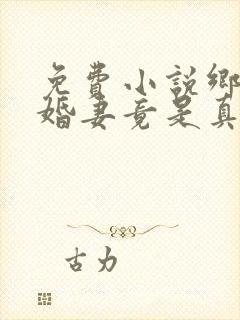 免費小說鄉
婚妻竟是真
古力